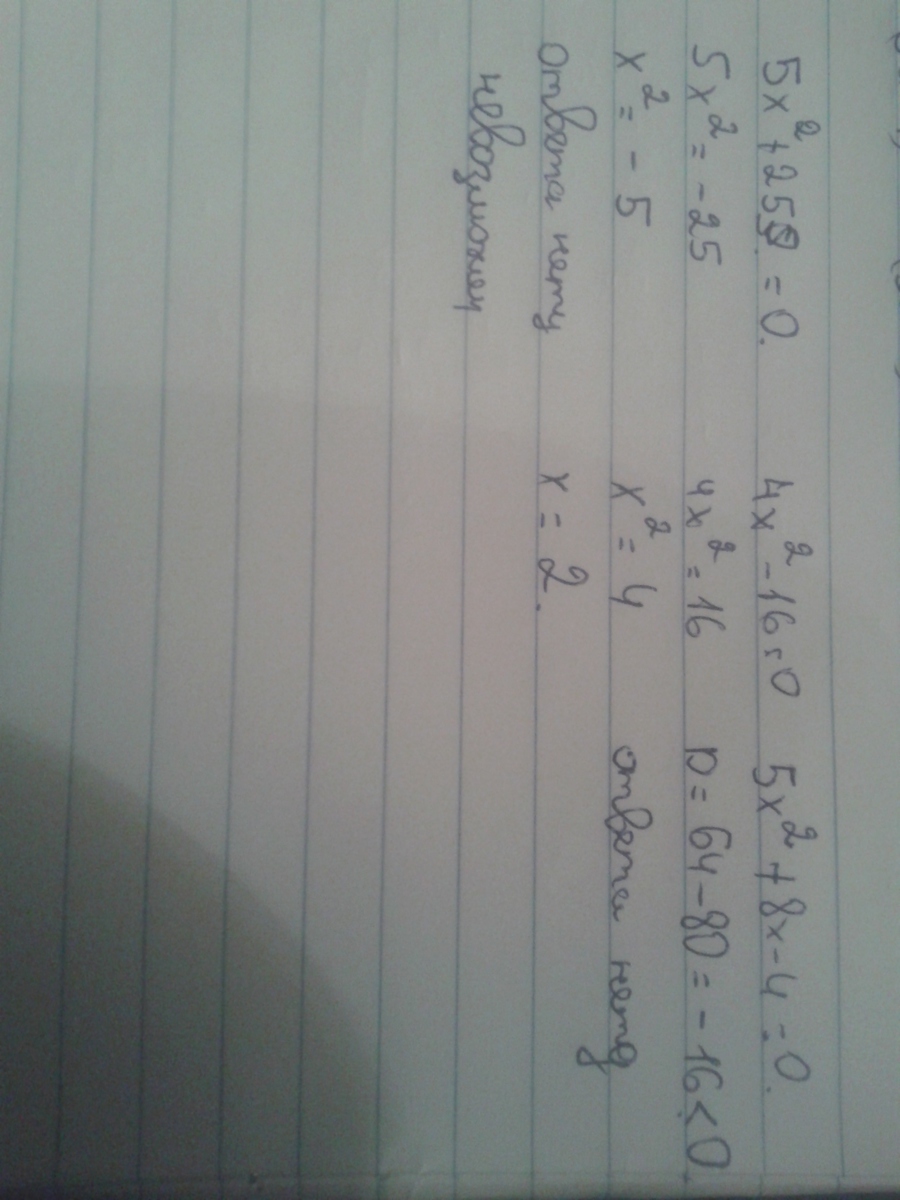 5x² + 25 = 0.
5x² = -25
x² = - 5
ответа нету
невозможен
4x² - 16 = 0
4x² = 16
x² = 4
x = 2.
5x² + 8x - 4 = 0.
D = 64 - 80 = - 16 < 0
ответа нету